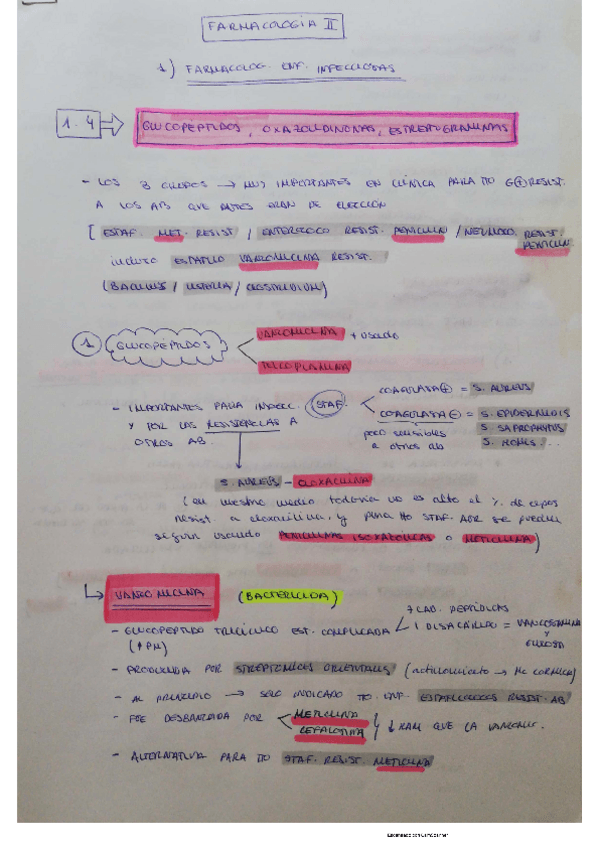 FARMACOLOGIA II
1) FARMACOLOG. ENF. INFECCIOSAS
1.4 GLUCOPÉPTIDOS, OXAZOLIDINONAS, ESTREPTOGRAMINAS
- LOS 3 GRUPOS → MUY IMPORTANTES EN CLÍNICA PARA TTO G⊕ RESIST.
A LOS AB QUE ANTES ERAN DE ELECCIÓN
[ ESTAF. MET. RESIST / ENTEROCOCO RESIST. PENICILIN / NEUMOCO. RESIST. PENICILIN
incluso ESTAFILO VANCOMICINA RESIST.
(BACILLUS / LISTERIA / CLOSTRIDIUM)
1 GLUCOPÉPTIDOS < VANCOMICINA + usado
TEICOPLANINA
- IMPORTANTES PARA INFECC. STAF. < COAGULASA ⊕ = S. AUREUS
Y POR LAS RESISTENCIAS A COAGULASA ⊖ = S. EPIDERMIDIS
OTROS AB. poco sensibles S. SAPROPHYTUS
a otros ab S. HOMIS...
S. AUREUS - CLOXACILINA
(en nuestro medio todavía no es alto el % de cepas
resist. a cloxacilina, y para tto STAF. AUR se pueden
seguir usando PENICILINAS ISOXAZÓLICAS o METICILINA)
↳ VANCOMICINA (BACTERICIDA)
7 CAD. PEPTÍDICAS
- GLUCOPÉPTIDO TRICÍCLICO EST. COMPLICADA < 1 DISACÁRIDO = VANCOSAMINA
(↑PM) Y GLUCOSA
- PRODUCIDA POR STREPTOMICES ORIENTALIS (actualmente →
- AL PRINCIPIO → SOLO INDICADO TTO. INF. ESTAFILOCOCOS RESIST. AB
- FUE DESBANCADA POR < METICILINA
CEFALOTINA } ↓ RAM QUE LA VANCOMIC.
- ALTERNATIVA PARA TTO STAF. RESIST. METICILINA
Escaneado con CamScanner